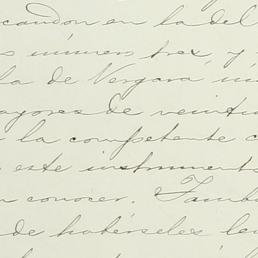 candon en la del
número tres, y
la de Vergara, nú
ayores de veintiu
la competente c
este instrumento
conocer. Tambi
de habérseles le